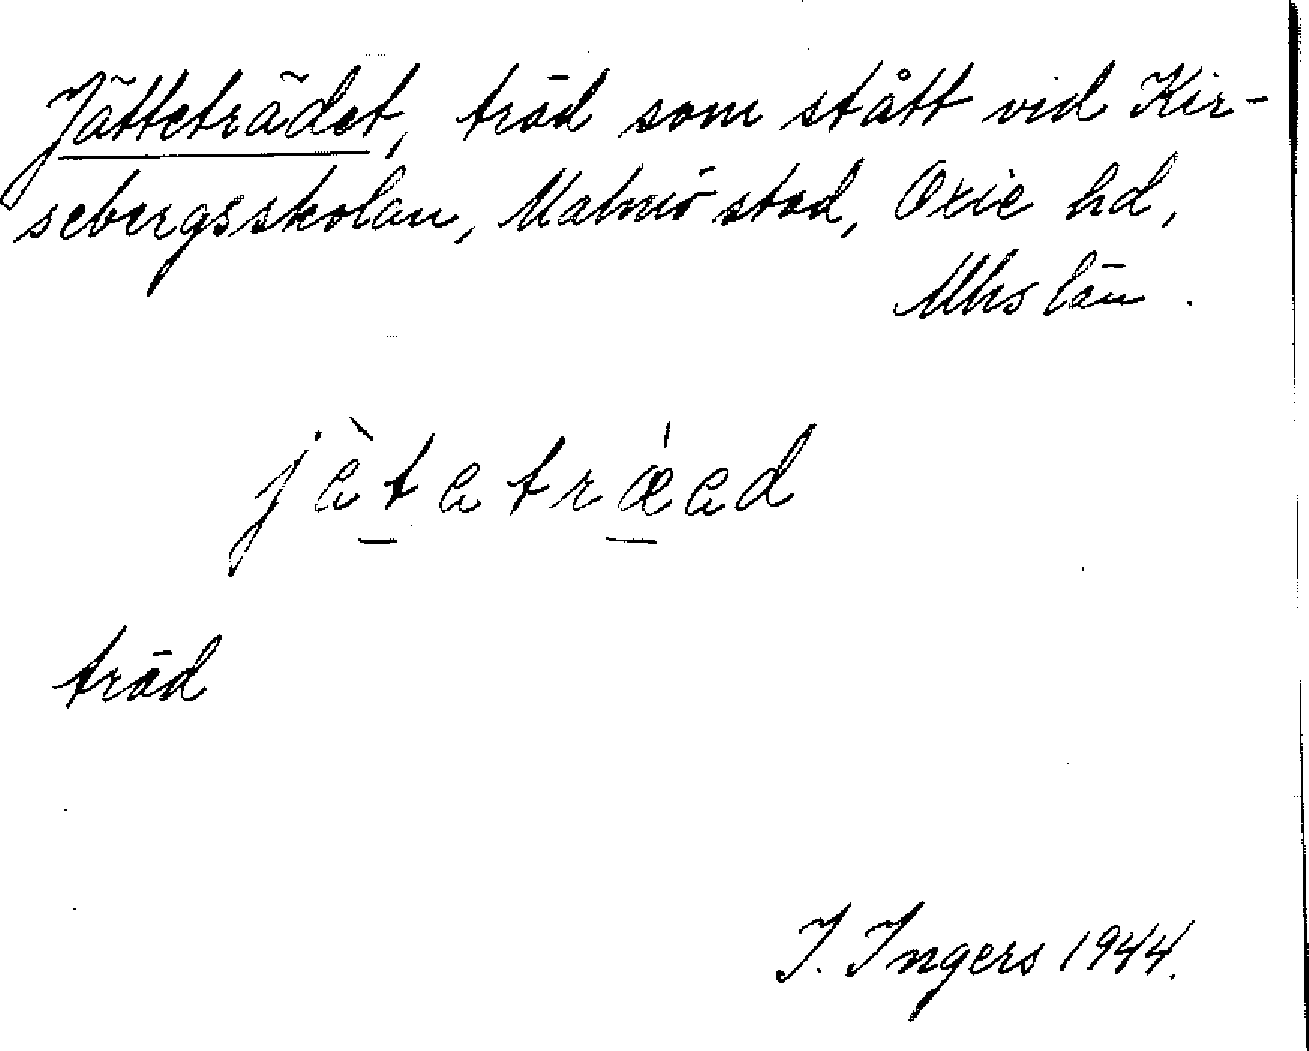 Jätteträdet, träd som stått vid Kir-
sebergsskolan, Malmö stad, Oxie hd,
Mhs län.
jètetrǽed
träd
I. Ingers 1944.